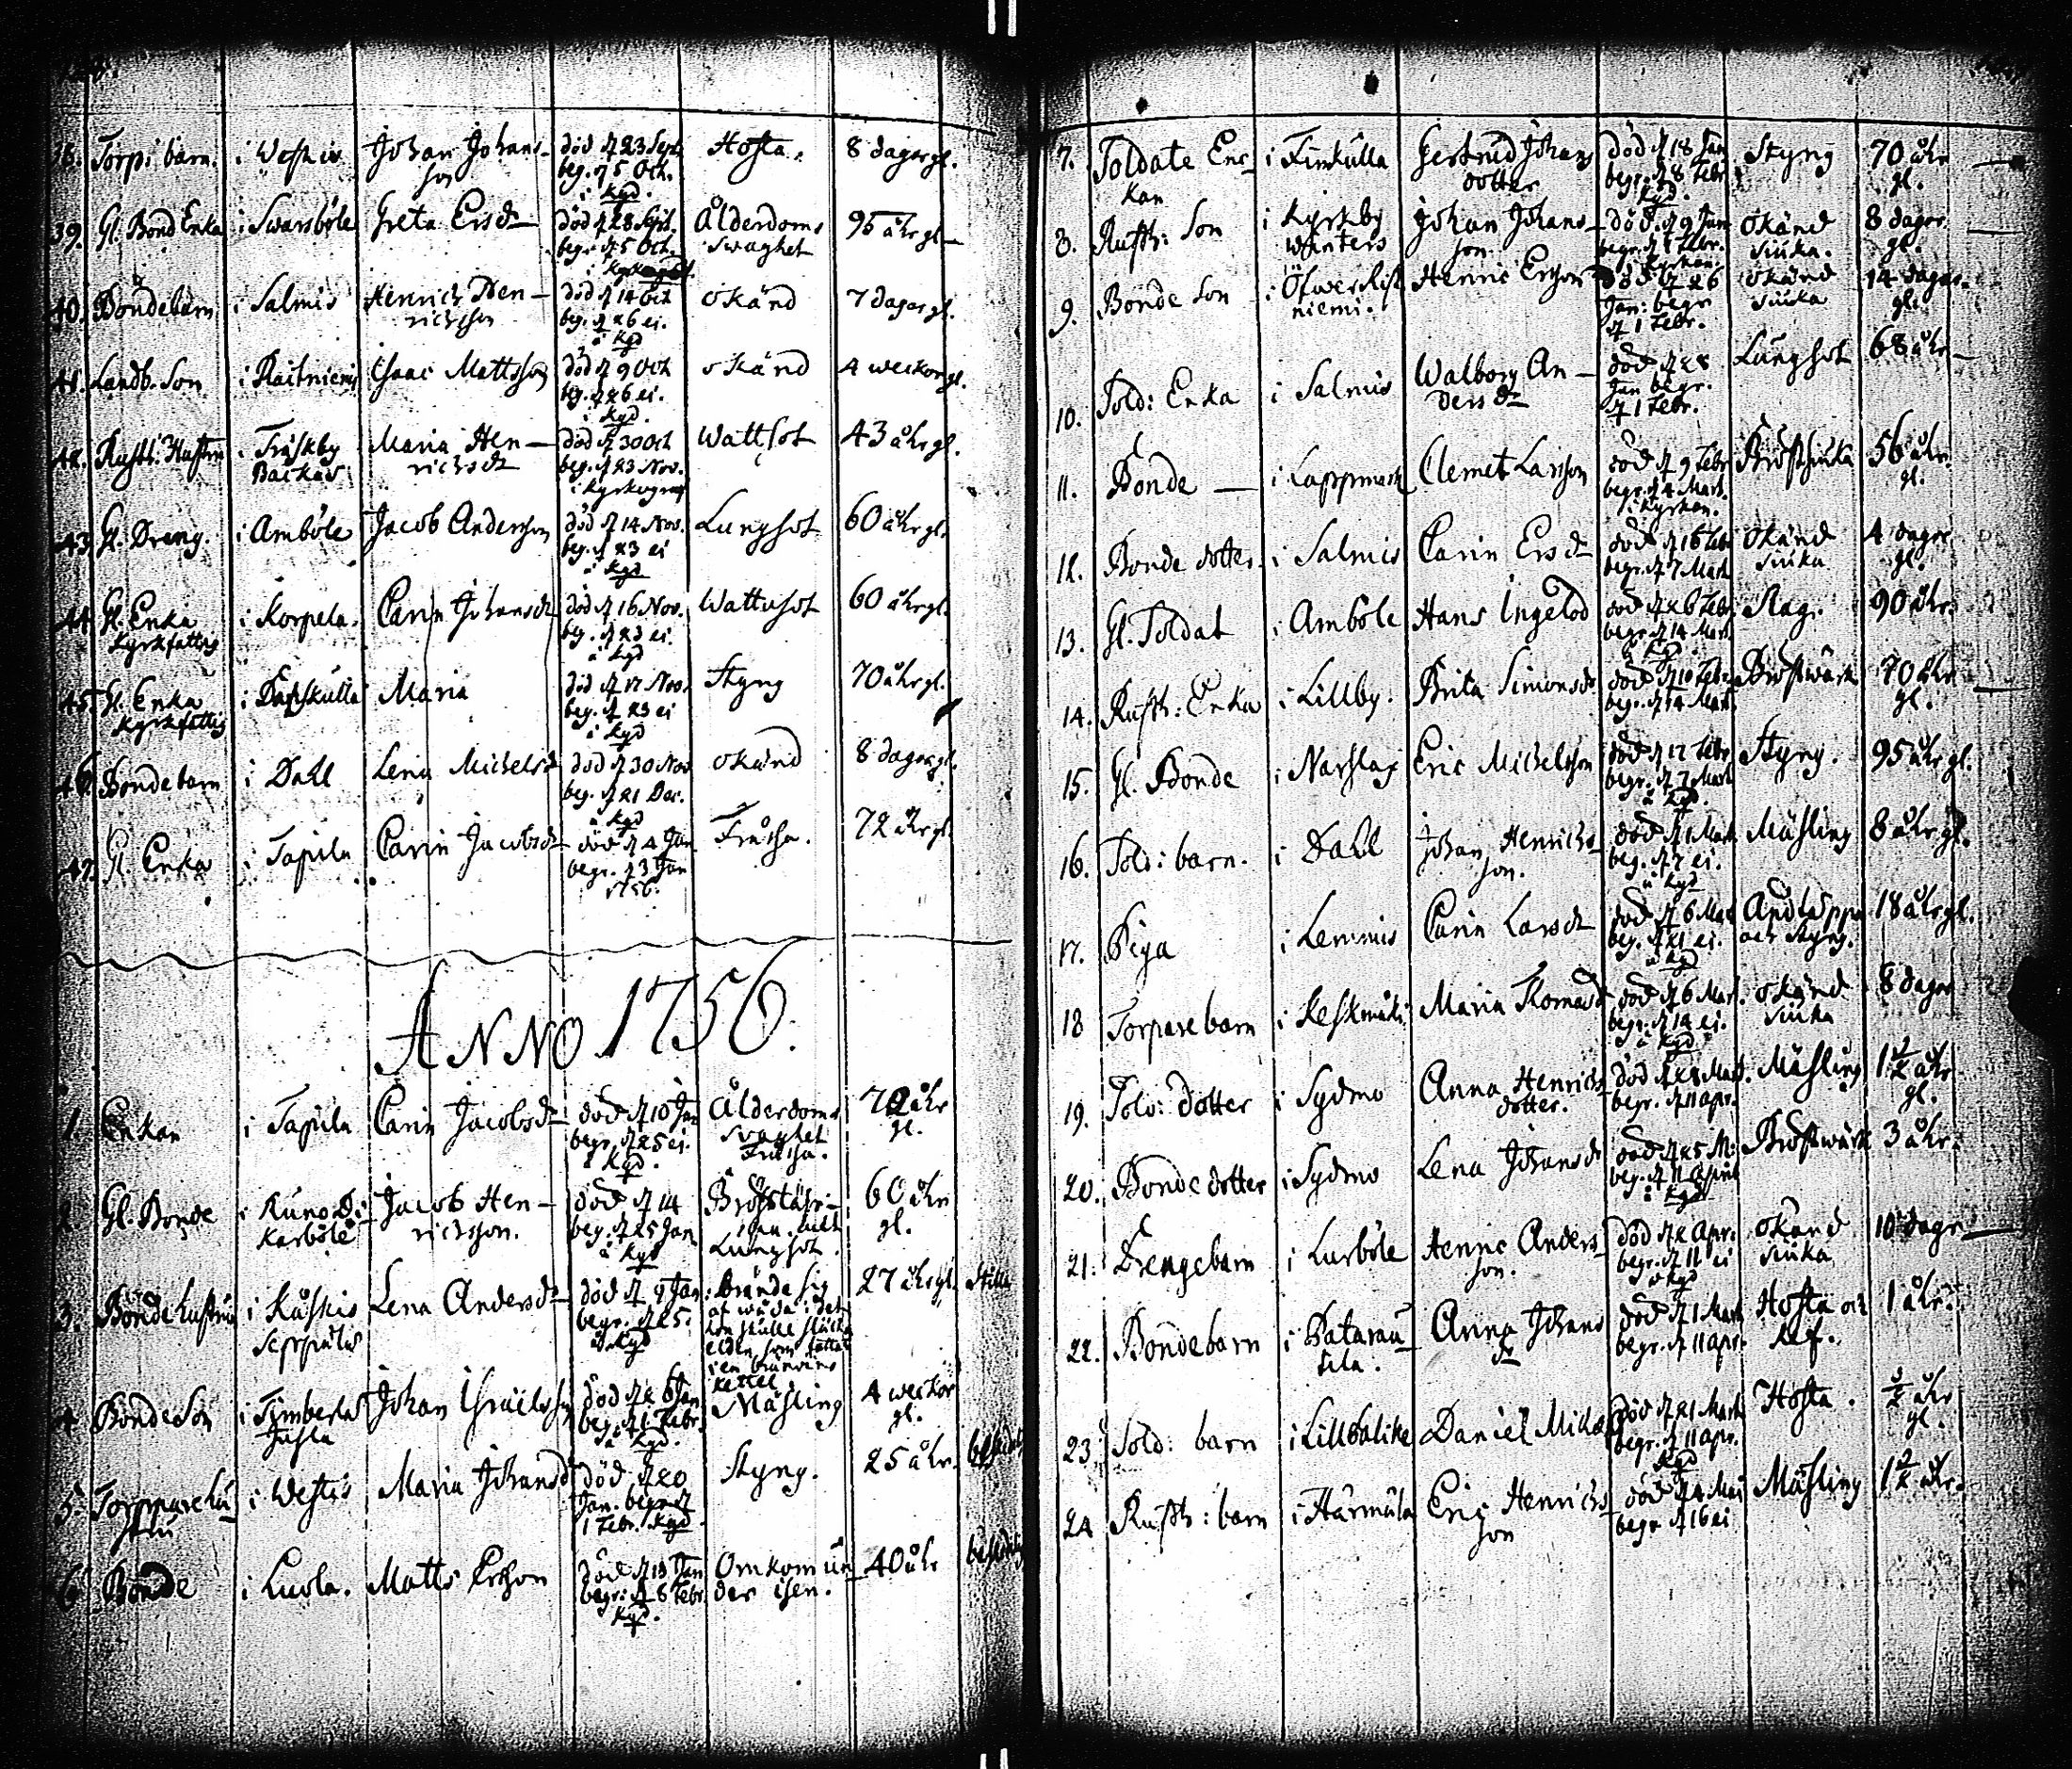 38. Torp: barn. i Westers Johan Johans- död d 23 Sept. Hosta. 8 dagar gl.
son beg. d 5 Oct.
i kgd.
39. Gl. Bond Enka i Swarsböle Greta Ersdr död d 28 Sept. Ålderdoms 95 åhr gl.
beg. d 5 Oct. swaghet
i kyrkogård
40. Bondebarn i Salmis Henrich Hen- död d 14 Oct okänd 7 dagar gl.
richsson beg. d 26 ei.
å kgd
41. Landb. Son i Raitniemi Isaac Mattsson död d 9 Oct okänd 4 weckor gl.
beg. d 26 ei.
i kgd.
42. Rusth: Hustru i Träskby Maria Hen- död d 30 Oct Wattsot 43 åhr gl.
Backas richsdr beg. d 23 Nov.
i kyrkogrd
43. Gl. Dreng. i Amböle Jacob Andersson död d 14 Nov. Lungsot 60 åhr gl.
beg. d 23 ei
å kgd
44. Gl. Enka i Korpela. Carin Johansdr död d 16 Nov. Wattusot 60 åhr gl.
Kyrkfattig beg. d 23 ei.
å kgd
45. Gl. Enka i Maria död d 17 Nov. Styng 70 åhr gl.
Kyrkfattig beg. d 23 ei
å kgd
46. Bondebarn i Dahl Lena Michelsdr död d 30 Nov okänd 8 dagar gl.
beg. d 21 Dec.
å kgd
47. Gl. Enka i Tapila Carin Jacobsdr död d 4 Jan Fråssa. 72 åhr gl.
begr. d 3 Jan
1756.
ANNO 1756.
1. Enkan i Tapila Carin Jacobsdr död d 10 Jan Ålderdoms 72 åhr
begr. d 25 ei. svaghet gl.
å kgd. Fråssa.
2. Gl. Bonde i Runo Di- Jacob Hen- död d 14 60 åhr
karböle richsson. beg. d 25 Jan gl.
å kgd Lungsot.
3. Bondehustru i Kåskis Lena Andersdr död d 9 Jan: Brände sig 27 åhr gl. stilla
Seppälä begr. d 25. af wåda i det
å kgd hon skulle släcka
elden som fattat
i en bränwins
kettel.
4. Bonde Son i Timberla Johan Israelsson död d 26 Jan Mässling 4 weckor
beg. d 1 Febr. gl.
å kgd.
5. Torpparehu- i Westers Maria Johansd död d 20 Styng. 25 åhr.
stru Jan. begr. d
1 Febr. kgd.
6. Bonde i Lusla. Matts Ersson död d 13 Jan Omkom un- 40 åhr
begr: d 8 Febr. der isen.
kgd.
7. Soldate Enc- i Finkulla Gertrud Johans död d 18 Jan Styng 70 åhr
kan dotter begr. d 8 Febr gl.
kgd.
8. Rusth: Son i Kyrkby Johan Johans- död. d 9 Jan okänd 8 dagar
Winters son begr. d 1 Febr. siuka. gl.
i kyrkan.
9. Bonde Son i Öfwer Kisk Henric Ersson död d 26 okänd 14 dagar.
niemi. Jan: begr siuka gl.
d 1 Febr.
10. Sold: Enka i Salmis Walborg An- död d 28 Lungsot 68 åhr
dersdr Jan begr.
d 1 Febr.
11. Bonde i Lappmark Clemet Larsson död d 9 Febr Bröstsiuka 56 åhr.
begr. d 4 Mart. gl.
i kyrkan.
12. Bonde dotter i Salmis Carin Ersdr död d 16 Feb okänd 4 dagar
begr. d 7 Mart siuka gl.
13. Gl. Soldat i Amböle Hans Ingelod död d 26 Febr Slag. 90 åhr.
begr. d 14 Mart
å kgd.
14. Rusth: Enka i Lillby. Brita Simonsdr död d 10 Febr. Bröstwärk 70 åhr
beg. d 14 Mart gl.
15. Gl. Bonde i Narslax Eric Michelsson död d 17 Febr Styng. 95 åhr gl.
begr. d 7 Mart
å kgd.
16. Sold: barn. i Dahl Johan Henrics- död d 1 Mart Mässling 8 åhr gl.
son. beg. d 7 ei.
å kgd
17. Piga i Lemmis Carin Larsdr död d 6 Mar Andtäppa 18 åhr gl.
beg. d 21 ei. och styng.
å kgd
18 Torpare barn i Keskimäki Maria Thomasd död d 6 Mar. okänd 8 dagar
begr. d 14 ei. siuka
å kgd
19. Sold: dotter i Sydmo Anna Henrics- död d 28 Mart. Mässling 1 1/2 åhr
dotter. begr. d 11 apr. gl.
20. Bonde dotter i Sydmo Lena Johansd död d 25 M: Bröstwärk 3 åhr.
beg. d 11 April
å kgd
21. Drengebarn i Lurböle Henric Anders- död d 2 Apr: okänd 10 dagr
son. begr. d 11 ei siuka
å kgd
22. Bondebarn i Patarau- Anna Johans död d 1 Mart Hosta och 1 åhr.
tila. dr begr. d 11 apr. Ref.
23. Sold: barn i Lillbålike Daniel Michels död d 21 Mart Hosta. 1/2 åhr
begr. d 11 apr. gl.
kgd
24 Rusth: barn i Härmälä Eric Henrics- död d 4 Mai Mässling 1 1/2 åhr.
son begr d 16 ei